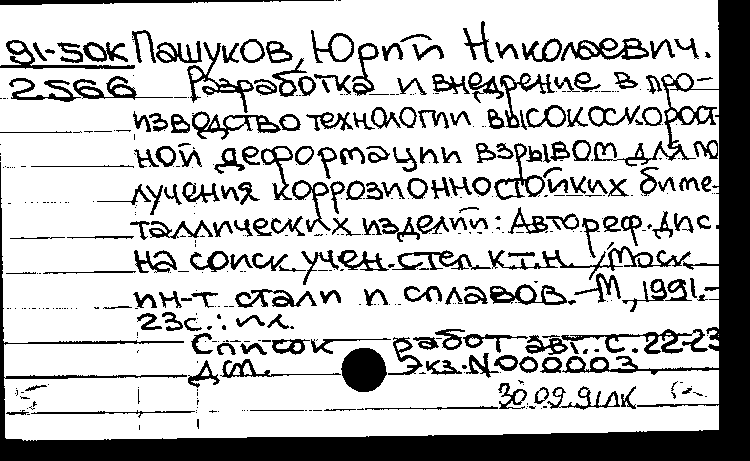 91-50К Пашуков, Юрий Николаевич.
2566 Разработка и внедрение в про-
изводство технологии высокоскорост-
ной деформации взрывом для по
лучения коррозионностойких биме-
таллических изделий: Автореф. дис.
на соиск. учен. степ. к.т.н. /Моск.
ин-т стали и сплавов. -М., 1991.-
23с.: ил.
Список работ авт.: с. 22-23
дсп. Экз. N000003.
30.09.91лк